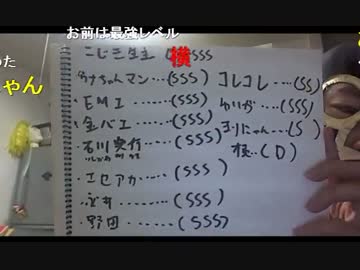 お前は最強レベル
横
った
ちゃん
こじき生主 (SSS
カナちゃんマン…(SSS)
EMI……(SSS)
金バエ……(SSS)
石川典行……(SSS)
エセアカ……(SSS)
野田……(SSS)
コレコレ……(SS)
ゆいが……(SSS)
よりにゃん…(S)
横…(D)